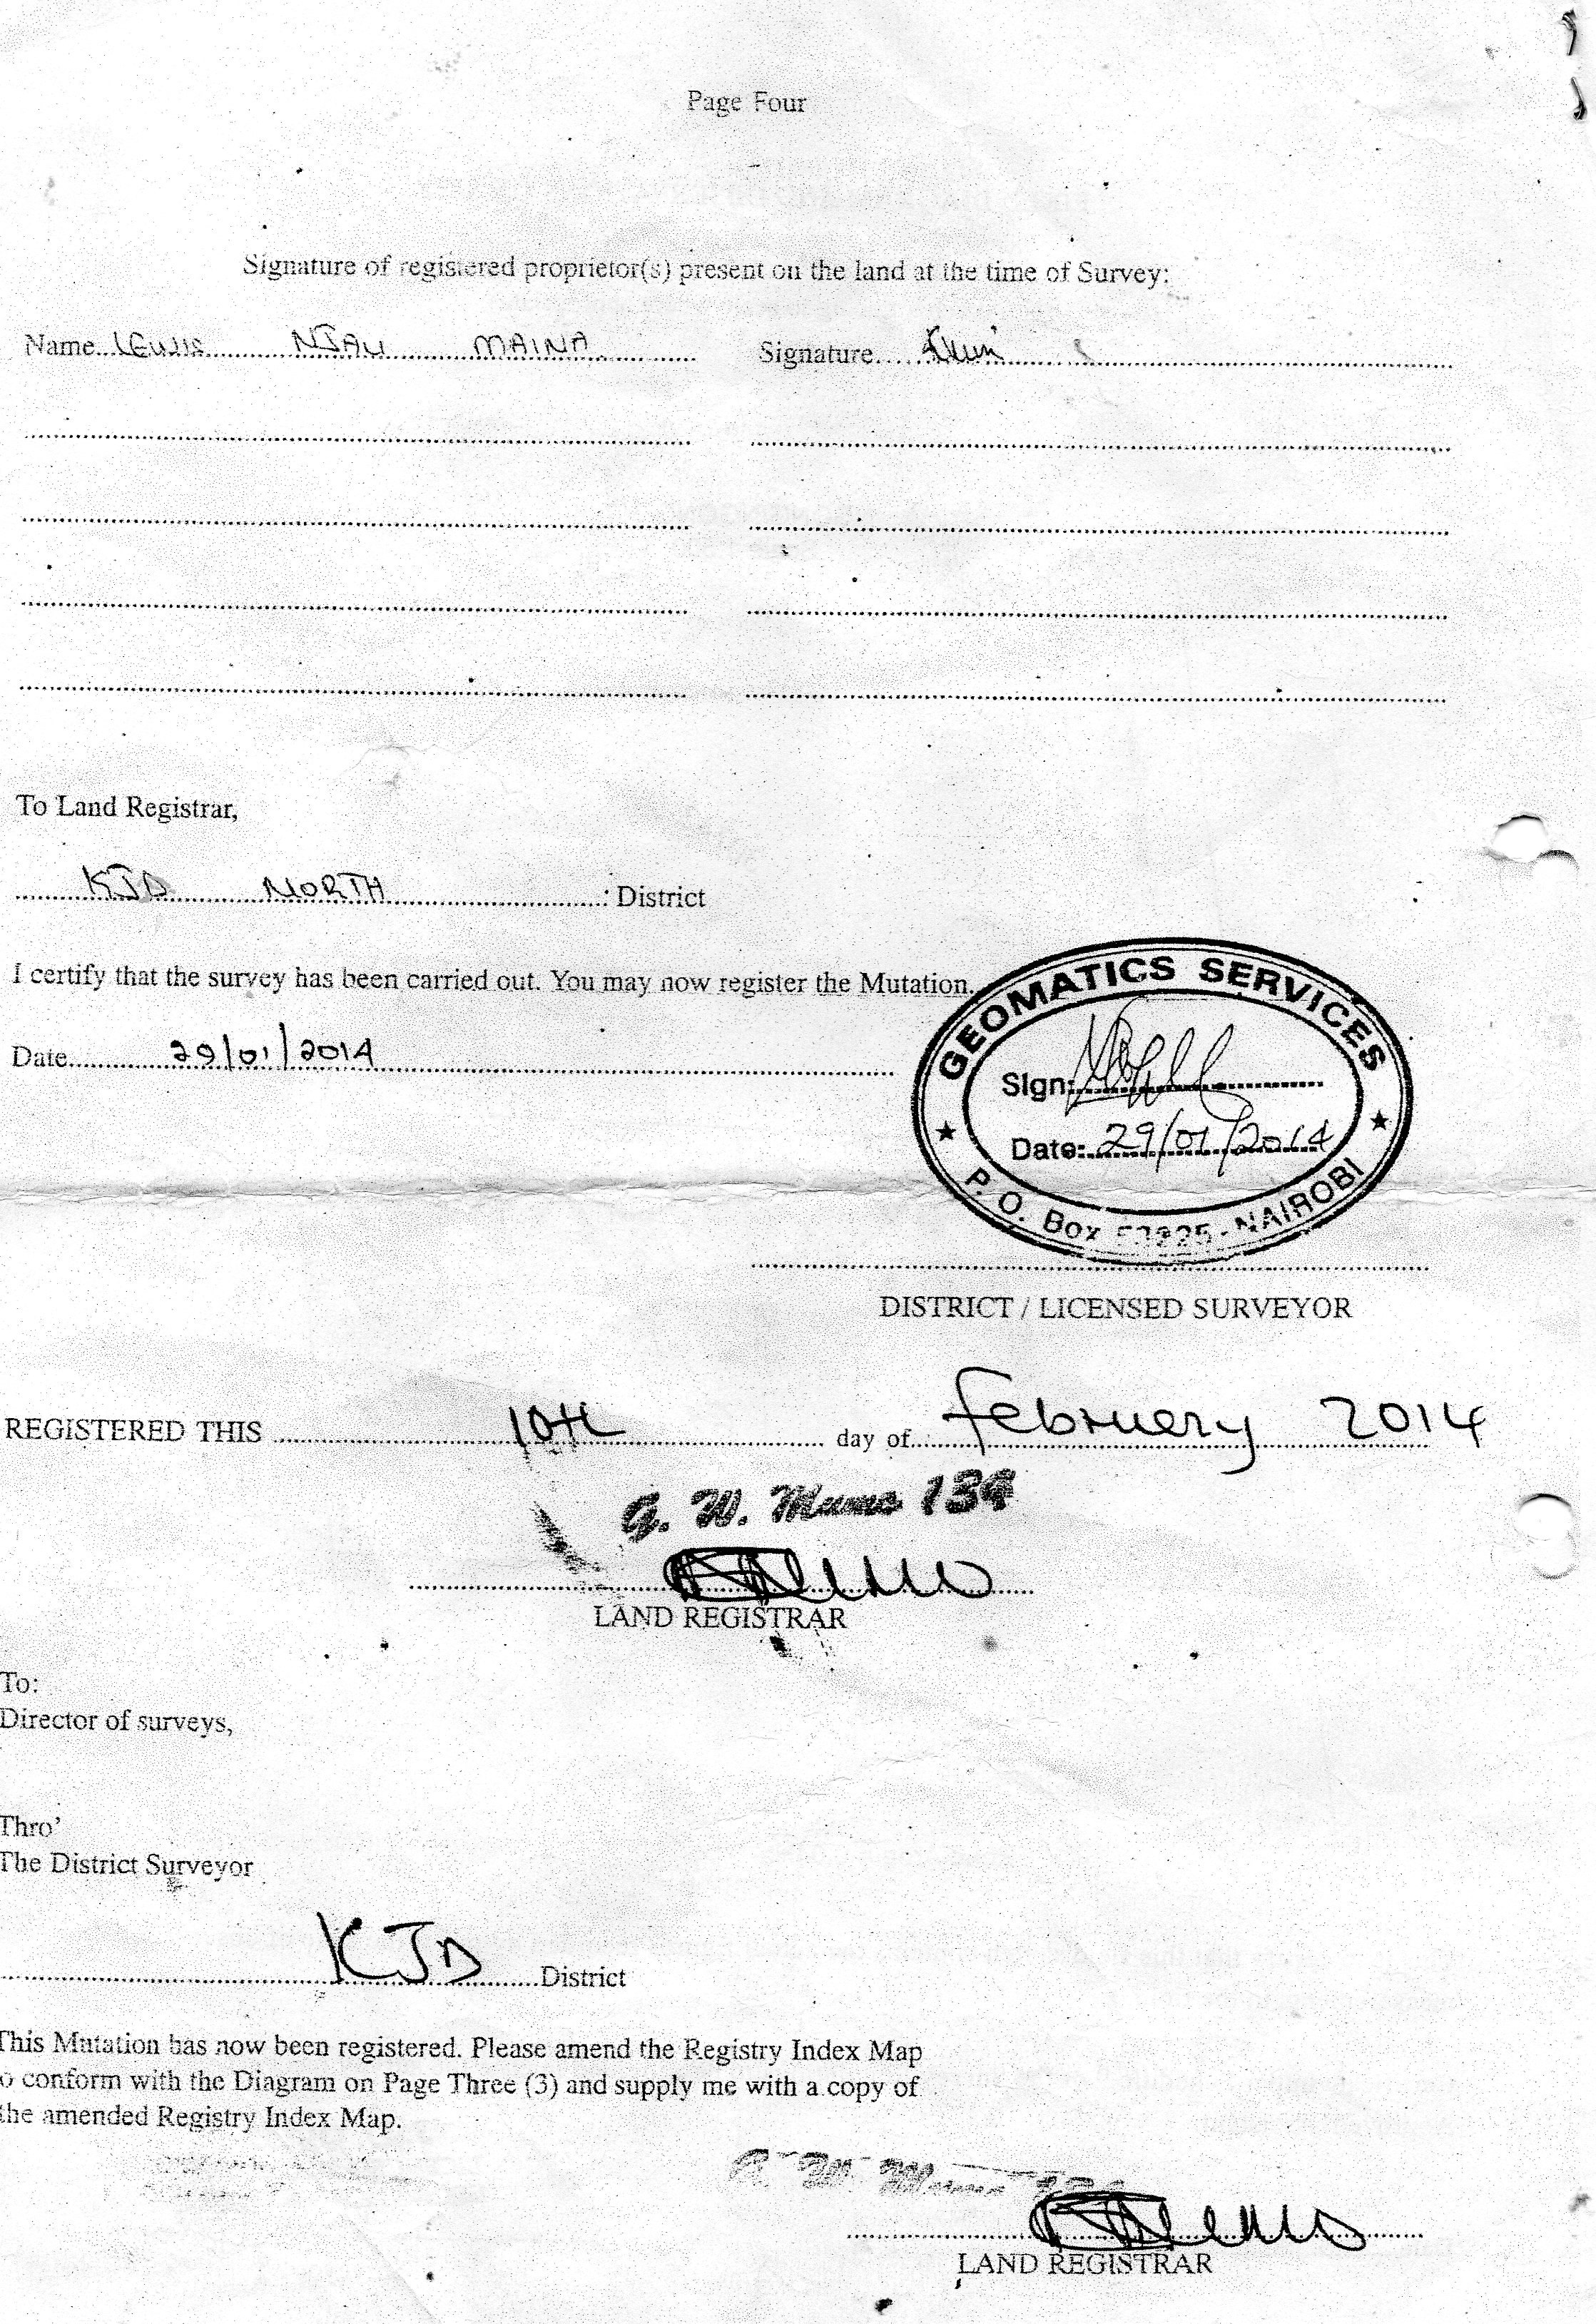 Page Four
Signature of registered proprietor(s) present on the land at the time of Survey:
Name LEWIS NJAU MAINA Signature
To Land Registrar,
KJD NORTH : District
I certify that the survey has been carried out. You may now register the Mutation.
Date 29/01/2014
GEOMATICS SERVICES
Sign:
Date: 29/01/2014
P. O. Box - NAIROBI
DISTRICT / LICENSED SURVEYOR
REGISTERED THIS 10th day of February 2014
G. W. Mumo 134
LAND REGISTRAR
To:
Director of surveys,
Thro’
The District Surveyor
KJD District
This Mutation has now been registered. Please amend the Registry Index Map
o conform with the Diagram on Page Three (3) and supply me with a copy of
the amended Registry Index Map.
G. W.
LAND REGISTRAR